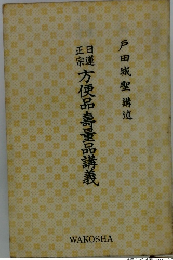 戸田城聖 講述
日蓮正宗
方便品寿量品講義
WAKOSHA